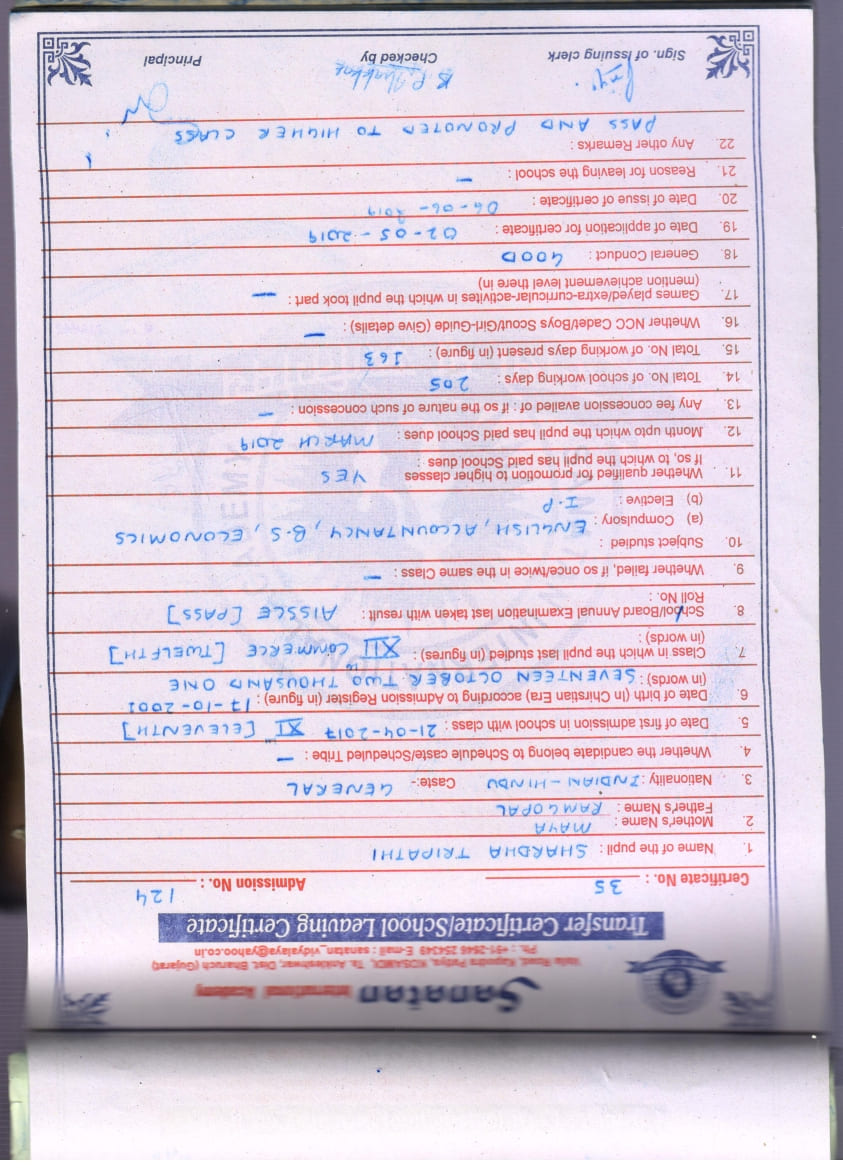 Sanatan International Academy
Valia Road, Kapodra Patiya, KOSAMDI, Ta. Ankleshwar, Dist. Bharuch (Gujarat)
Ph. : +91-2646 254349 E-mail : sanatan_vidyalaya@yahoo.co.in
Transfer Certificate/School Leaving Certificate
Certificate No. : 35 Admission No. : 124
1. Name of the pupil : SHARDHA TRIPATHI
2. Mother's Name : MAYA
Father's Name : RAMGOPAL
3. Nationality : INDIAN - HINDU Caste:- GENERAL
4. Whether the candidate belong to Schedule caste/Scheduled Tribe : —
5. Date of first admission in school with class : 21-04-2017 XI [ELEVENTH]
6. Date of birth (In Chirstian Era) according to Admission Register (in figure) : 17-10-2001
(in words) : SEVENTEEN OCTOBER TWO THOUSAND ONE
7. Class in which the pupil last studied (in figures) : XII COMMERCE [TWELFTH]
(in words) :
8. School/Board Annual Examination last taken with result : AISSCE [PASS]
Roll No. :
9. Whether failed, if so once/twice in the same Class : —
10. Subject studied :
(a) Compulsory : ENGLISH, ACCOUNTANCY, B.S, ECONOMICS
(b) Elective : I.P
11. Whether qualified for promotion to higher classes YES
If so, to which the pupil has paid School dues :
12. Month upto which the pupil has paid School dues : MARCH 2019
13. Any fee concession availed of : if so the nature of such concession : —
14. Total No. of school working days : 205
15. Total No. of working days present (in figure) : 163
16. Whether NCC Cadet/Boys Scout/Girl-Guide (Give details) : —
17. Games played/extra-curricular-activites in which the pupil took part : —
(mention achievement level there in)
18. General Conduct : GOOD
19. Date of application for certificate : 02-05-2019
20. Date of issue of certificate : 04-06-2019
21. Reason for leaving the school : —
22. Any other Remarks :
PASS AND PROMOTED TO HIGHER CLASS
Sign. of Issuing clerk Checked by Principal